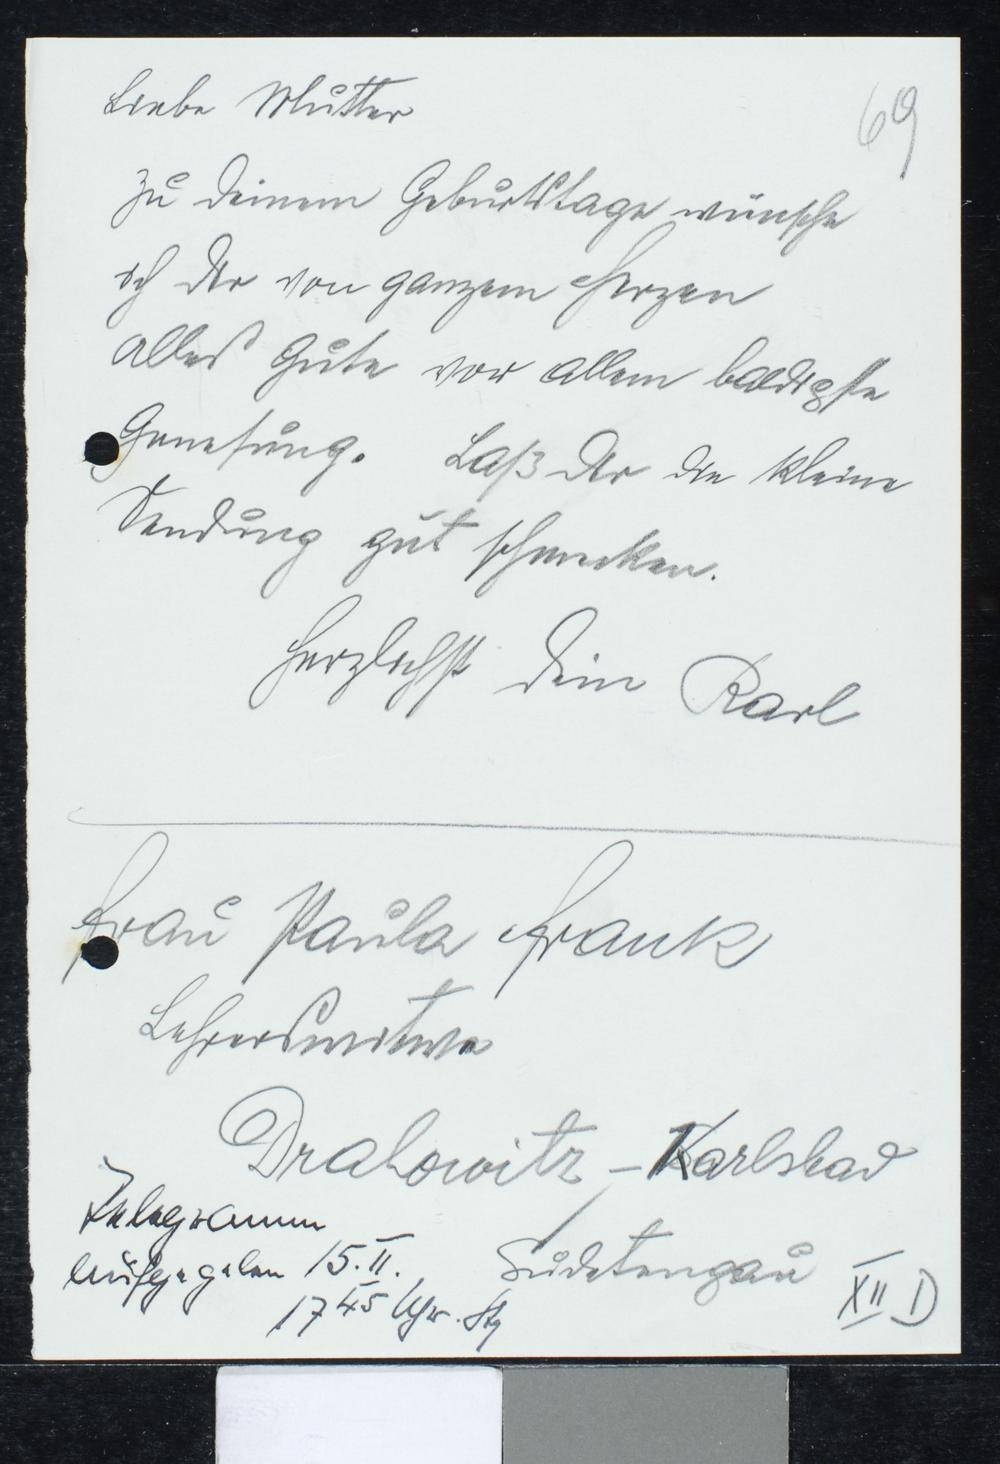 Liebe Mutter
69
Zu Deinem Geburtstage wünsche
ich Dir von ganzem Herzen
alles Gute vor allem baldigste
Genesung. Laß Dir die kleine
Sendung gut schmecken.
Herzlichst Dein Karl
Frau Paula Frank
Lehrerswitwe
Drahowitz - Karlsbad
Sudetengau
Telegramm
aufgegeben 15.II.
17 45 Uhr.
XII D